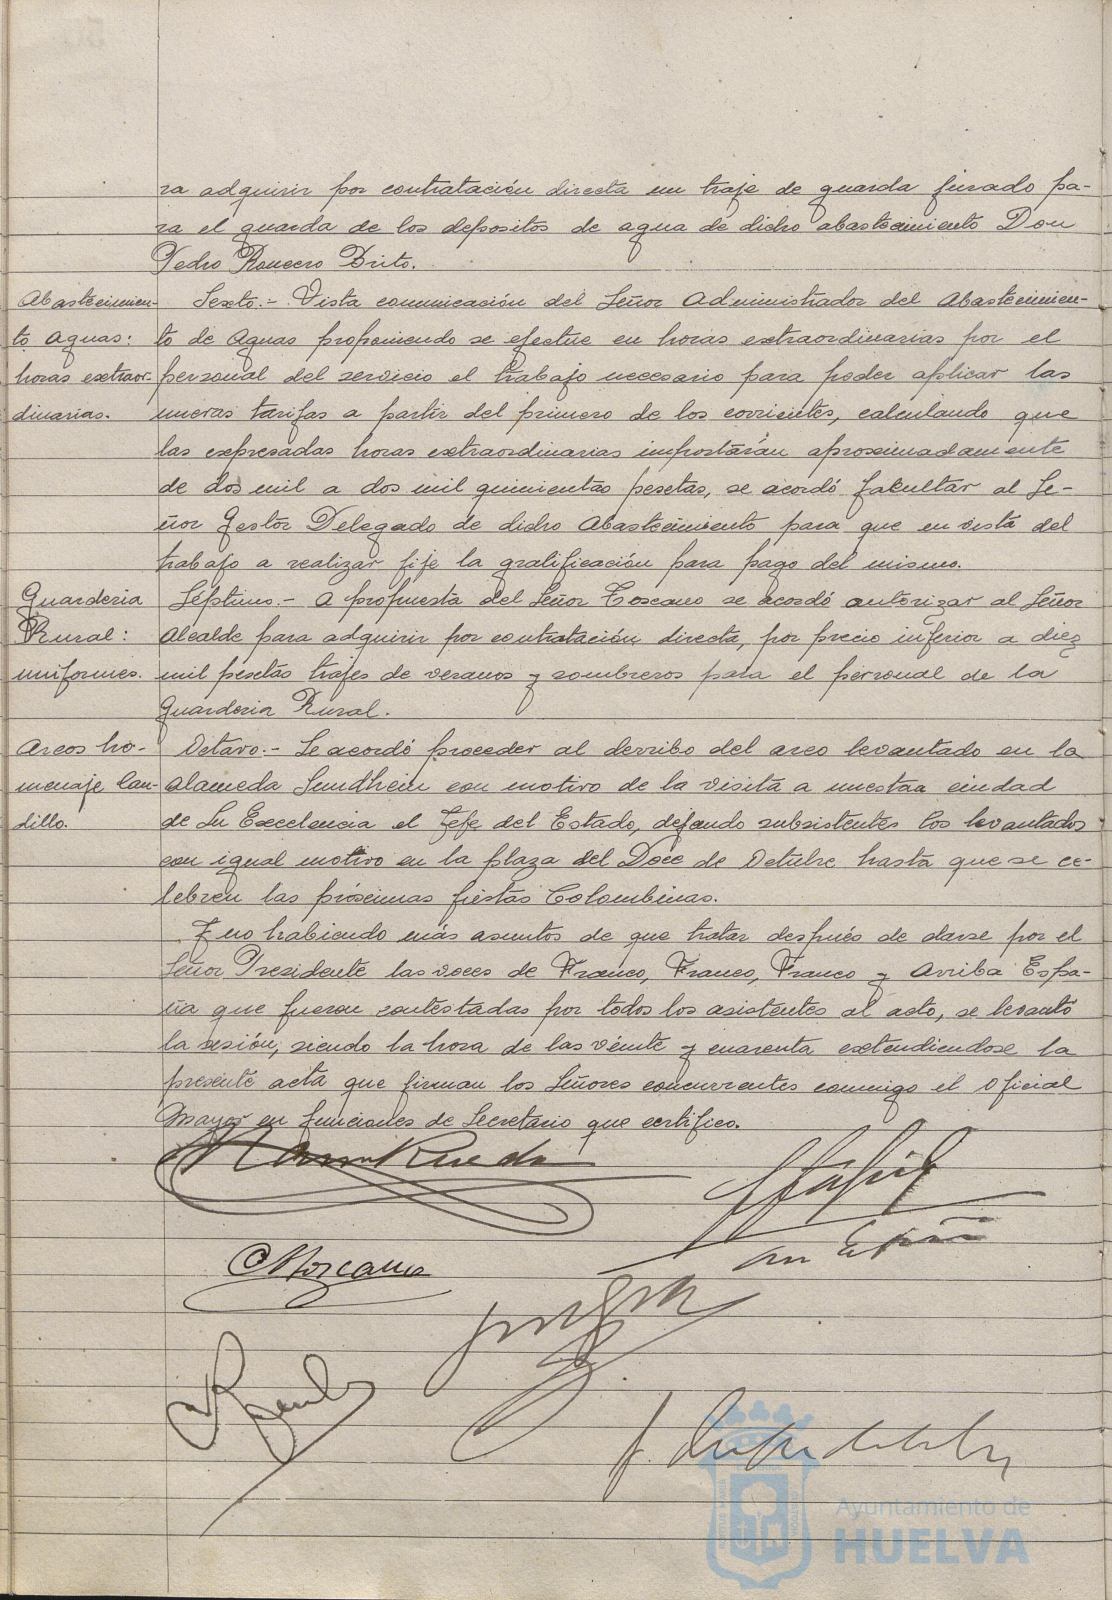 ra adquirir por contratación directa un traje de guarda jurado pa-
ra el guarda de los depositos de agua de dicho abastecimiento Don
Pedro Romero Brito.
Abastecimien-
to aguas:
horas extraor-
dinarias.
Sexto.- Vista comunicación del Señor Administrador del Abastecimien-
to de Aguas proponiendo se efectue en horas extraordinarias por el
personal del servicio el trabajo necesario para poder aplicar las
nuevas tarifas a partir del primero de los corrientes, calculando que
las expresadas horas extraordinarias importarán aproximadamente
de dos mil a dos mil quinientas pesetas, se acordó facultar al Se-
ñor Gestor Delegado de dicho Abastecimiento para que en vista del
trabajo a realizar fije la gratificación para pago del mismo.
Guarderia
Rural:
uniformes.
Séptimo.- A propuesta del Señor Toscano se acordó autorizar al Señor
Alcalde para adquirir por contratación directa, por precio inferior a diez
mil pesetas trajes de veranos y sombreros para el personal de la
Guarderia Rural.
Arcos ho-
menaje Cau-
dillo.
Octavo.- Se acordó proceder al derribo del arco levantado en la
Alameda Sundhein con motivo de la visita a nuestra ciudad
de Su Excelencia el Jefe del Estado, dejando subsistentes los levantados
con igual motivo en la plaza del Doce de Octubre hasta que se ce-
lebren las próximas fiestas Colombinas.
Y no habiendo más asuntos de que tratar después de darse por el
Señor Presidente las voces de Franco, Franco, Franco y Arriba Espa-
ña que fueron contestadas por todos los asistentes al acto, se levantó
la sesión, siendo la hora de las veinte y cuarenta extendiendose la
presente acta que firman los Señores concurrentes conmigo el Oficial
Mayor en funciones de Secretario que certifico.
Toscano
Ayuntamiento de
HUELVA